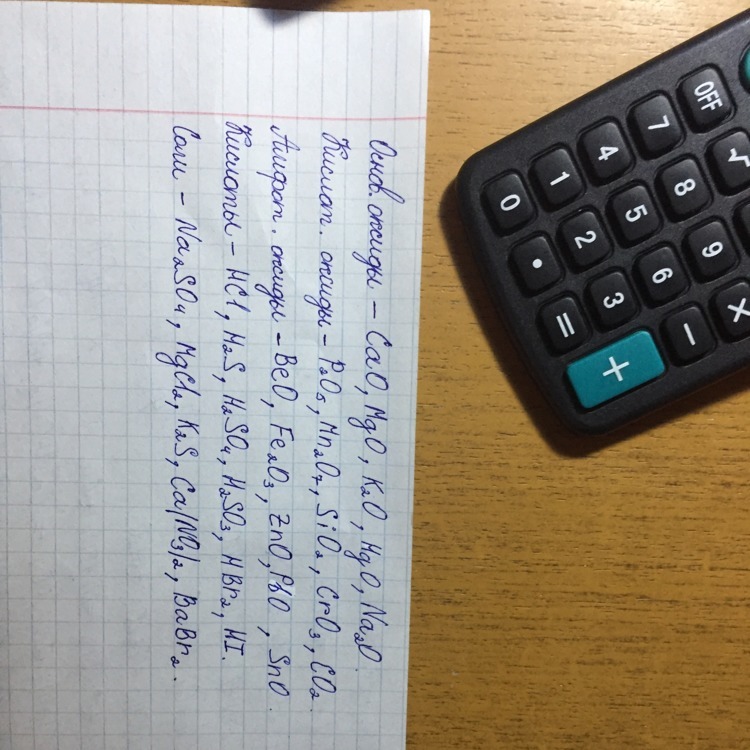 Основ. оксиды – CaO, MgO, K₂O, HgO, Na₂O.
Кислот. оксиды – P₂O₅, Mn₂O₇, SiO₂, CrO₃, CO₂.
Амфот. оксиды – BeO, Fe₂O₃, ZnO, PbO, SnO.
Кислоты – HCl, H₂S, H₂SO₄, H₂SO₃, HBr₂, HI.
Соли – Na₂SO₄, MgCl₂, K₂S, Ca(NO₃)₂, BaBr₂.
OFF √
7 8 9 ×
4 5 6 −
1 2 3 +
0 • =